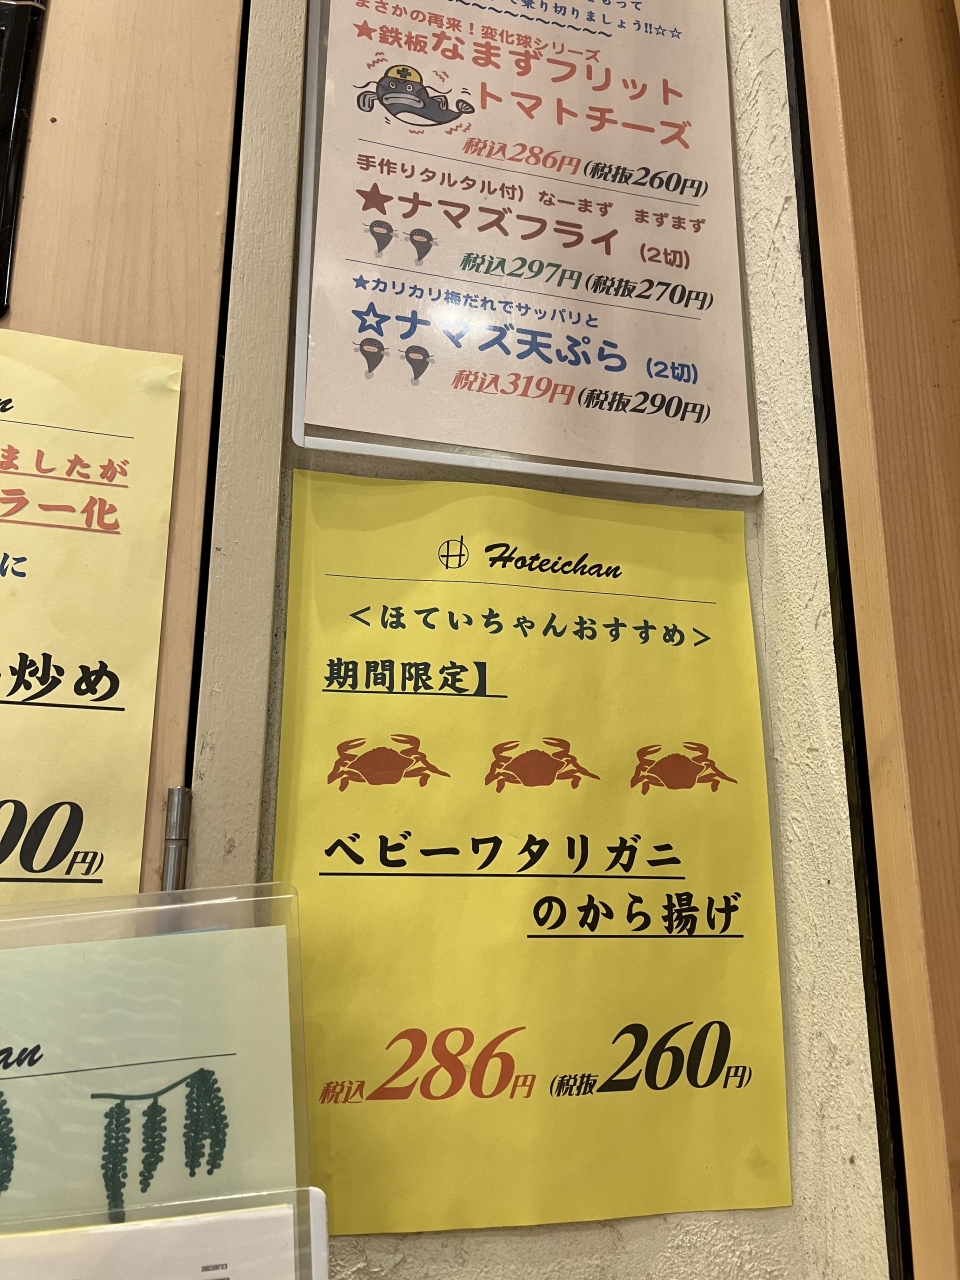 で乗り切りましょう!!☆☆
まさかの再来！変化球シリーズ
★鉄板なまずフリット
トマトチーズ
税込286円(税抜260円)
手作りタルタル付）なーまず　まずまず
★ナマズフライ（2切）
税込297円(税抜270円)
★カリカリ梅だれでサッパリと
☆ナマズ天ぷら（2切）
税込319円(税抜290円)
ましたが
ラー化
に
炒め
00円)
Hoteichan
＜ほていちゃんおすすめ＞
期間限定】
ベビーワタリガニ
のから揚げ
税込286円 (税抜260円)
an